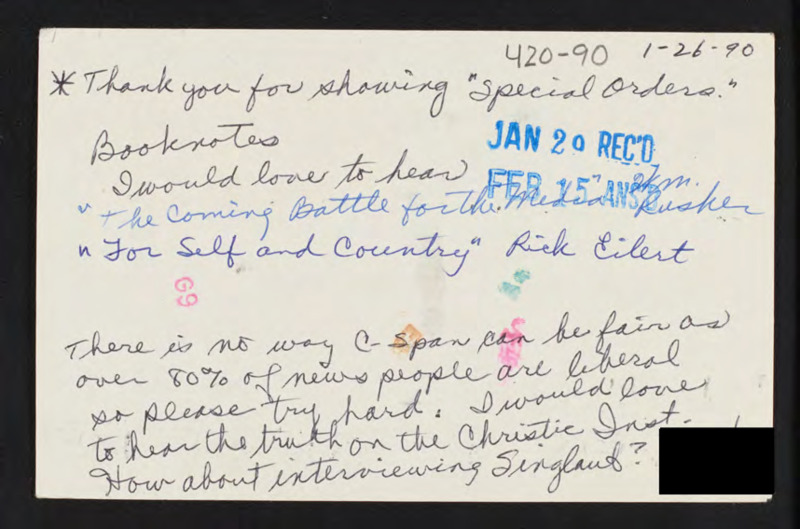 420-90 1-26-90
* Thank you for showing "Special Orders."
Booknotes
JAN 29 REC'D
I would love to hear
FEB 15 ANS'D
"The Coming Battle for the Media" Wm. Rusher
"For Self and Country" Rick Eilert
G9
There is no way C-Span can be fair as
over 80% of news people are liberal
so please try hard. I would love
to hear the truth on the Christic Inst.
How about interviewing Singlaub?